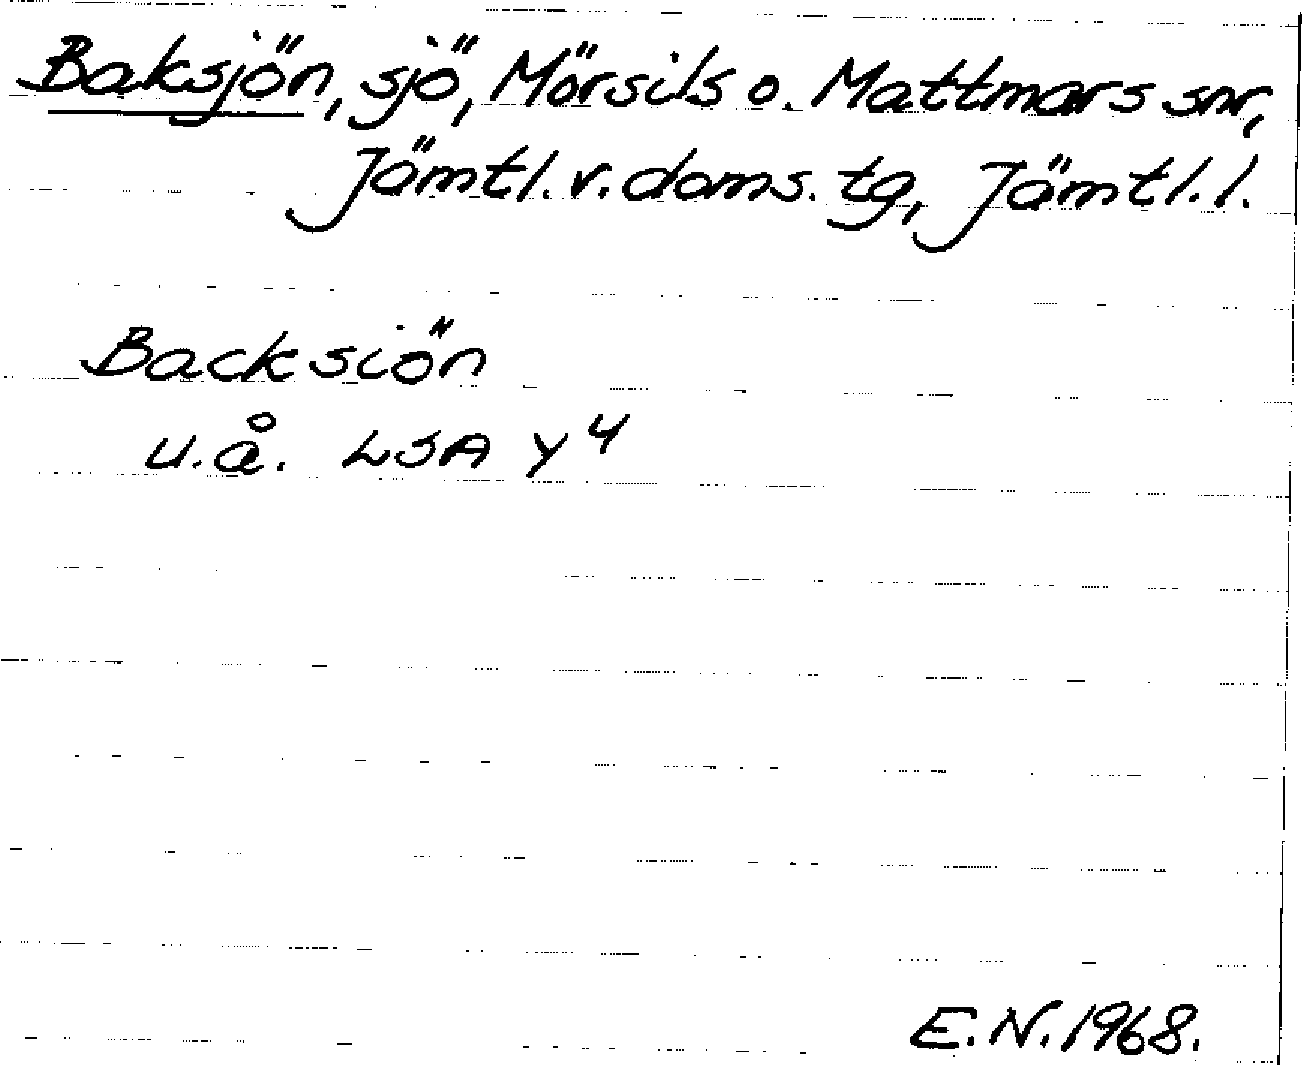 Baksjön, sjö, Mörsils o. Mattmars snr,
Jämtl. v. doms. tg, Jämtl. l.
Backsiön
u.å. LSA Y 4
E.N. 1968.